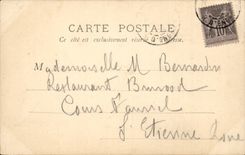 CARTE POSTALE
Ce côté est exclusivement réservé à l'adresse
10
Mademoiselle M Bernardin
Restaurant
Cours Fauriel
St Etienne Loire